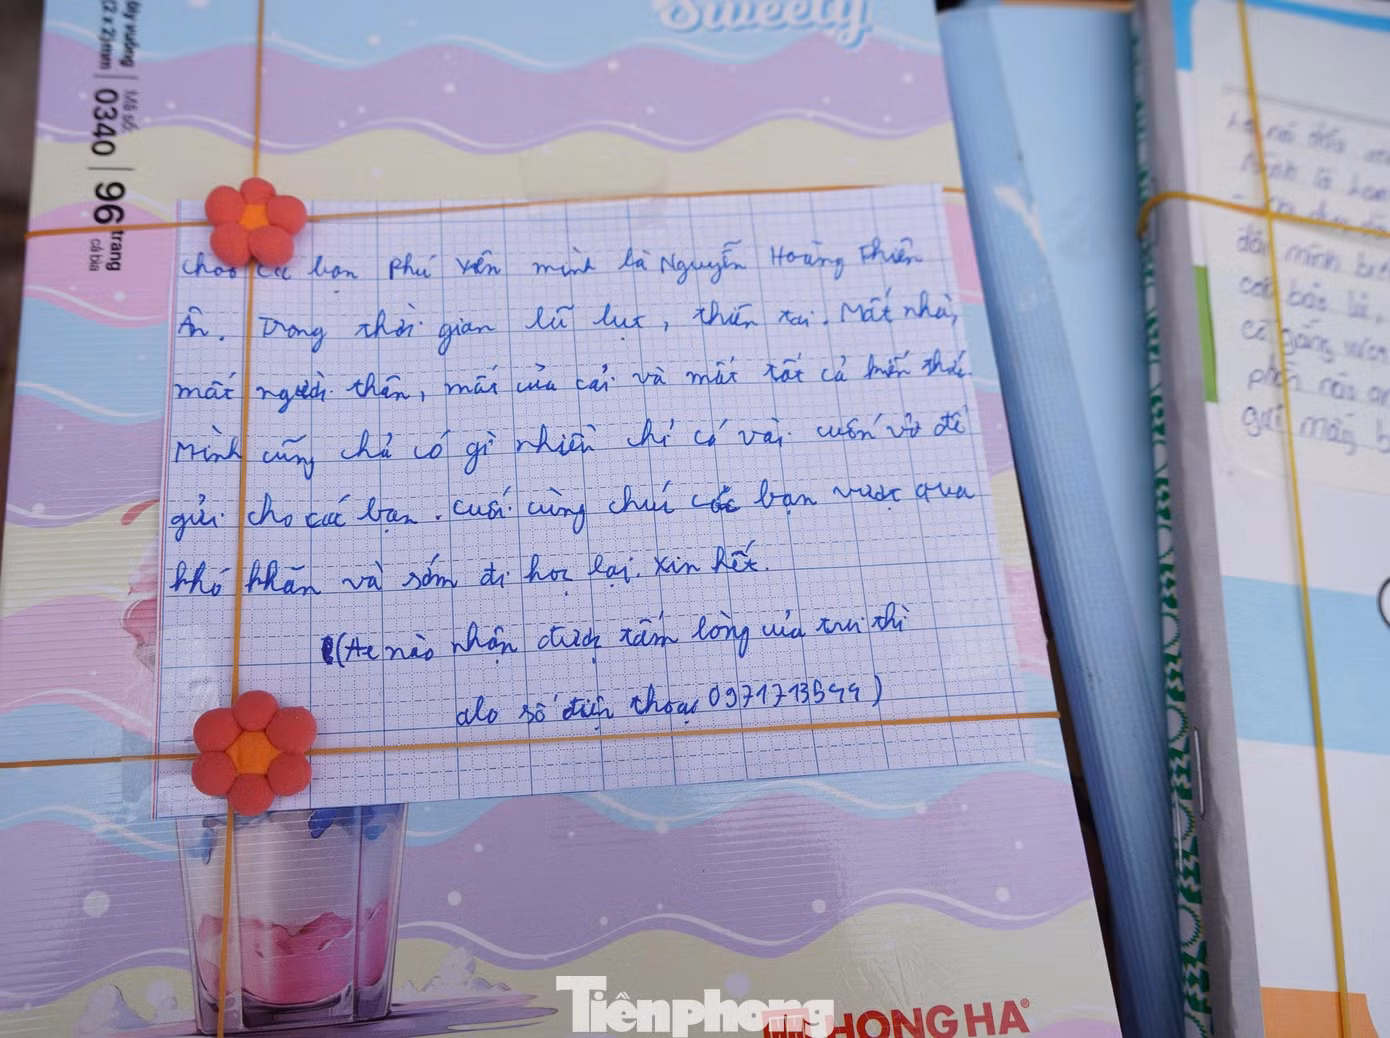 Sweety
ôly vuông | Mã số:
(2 x 2) mm | 0340 | 96 trang
cả bìa
chào các bạn Phú Yên mình là Nguyễn Hoàng Thiên
Ân. Trong thời gian lũ lụt, thiên tai. Mất nhà,
mất người thân, mất của cải và mất tất cả mến thứ.
Mình cũng chả có gì nhiều chỉ có vài cuốn vở để
gửi cho các bạn. cuối cùng chúc các bạn vượt qua
khó khăn và sớm đi học lại. Xin hết.
(Ae nào nhận được tấm lòng của trui thì
alo số điện thoại 0971713599)
đầu
mình
các bác
cố gắng
phần nào
gửi
Tiênphong
HONG HA®